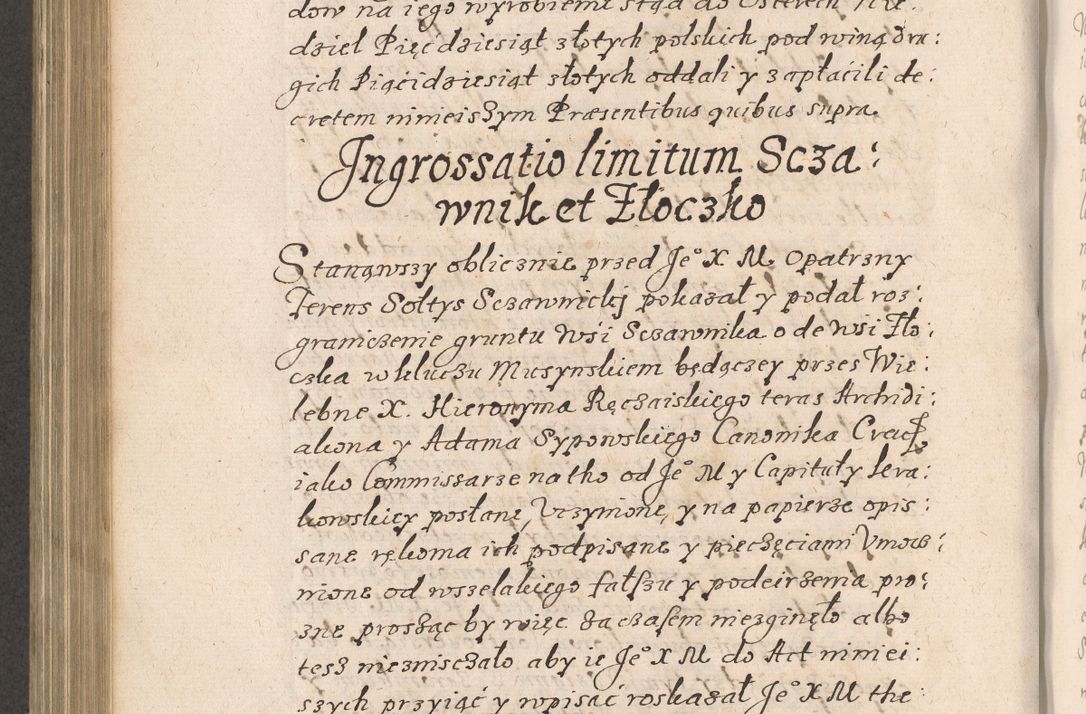 dow na iego wyrobienie stąd do Osterech Nie:
dziel Pięcdziesiąt złotych polskich pod winą dru:
gich Pięcidziesiąt złotych oddali y zapłaćili de:
cretem ninieiszym Præsentibus quibus supra.
Ingrossatio limitum Scza:
wnik et Złoczko
Stanąwszy oblicznie przed Je° X M. Opatrzny
Ierens Sołtys Sczawnickij pokazał y podał roz:
graniczenie gruntu Wśi Sczawnika o de Wsi Zło:
czka w kluczu Muszynskiem będączey przes Wie:
lebne X. Hieronyma Ręczaiskiego teras Archidi:
akona y Adama Sypowskiego Canonika Crac
iako Commissarze na tho od Je° M y Capituły kra:
kowskiey posłane, Vczymione, y na papierze opis:
sane rękoma ich podpisane y pieczęciami Vmoc:
nione od wszelakiego fałszu y podeirzenia pro:
zne prosząc by więc za czasem niezginęło albo
tesz niezniszczało aby ie Je° X M do Act niniei:
szych przyiąć y wpisać roskazał Je° X M the